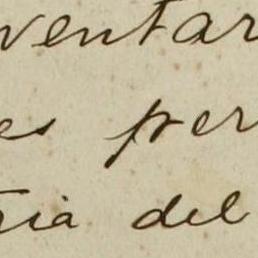 ventar
es per
ria del